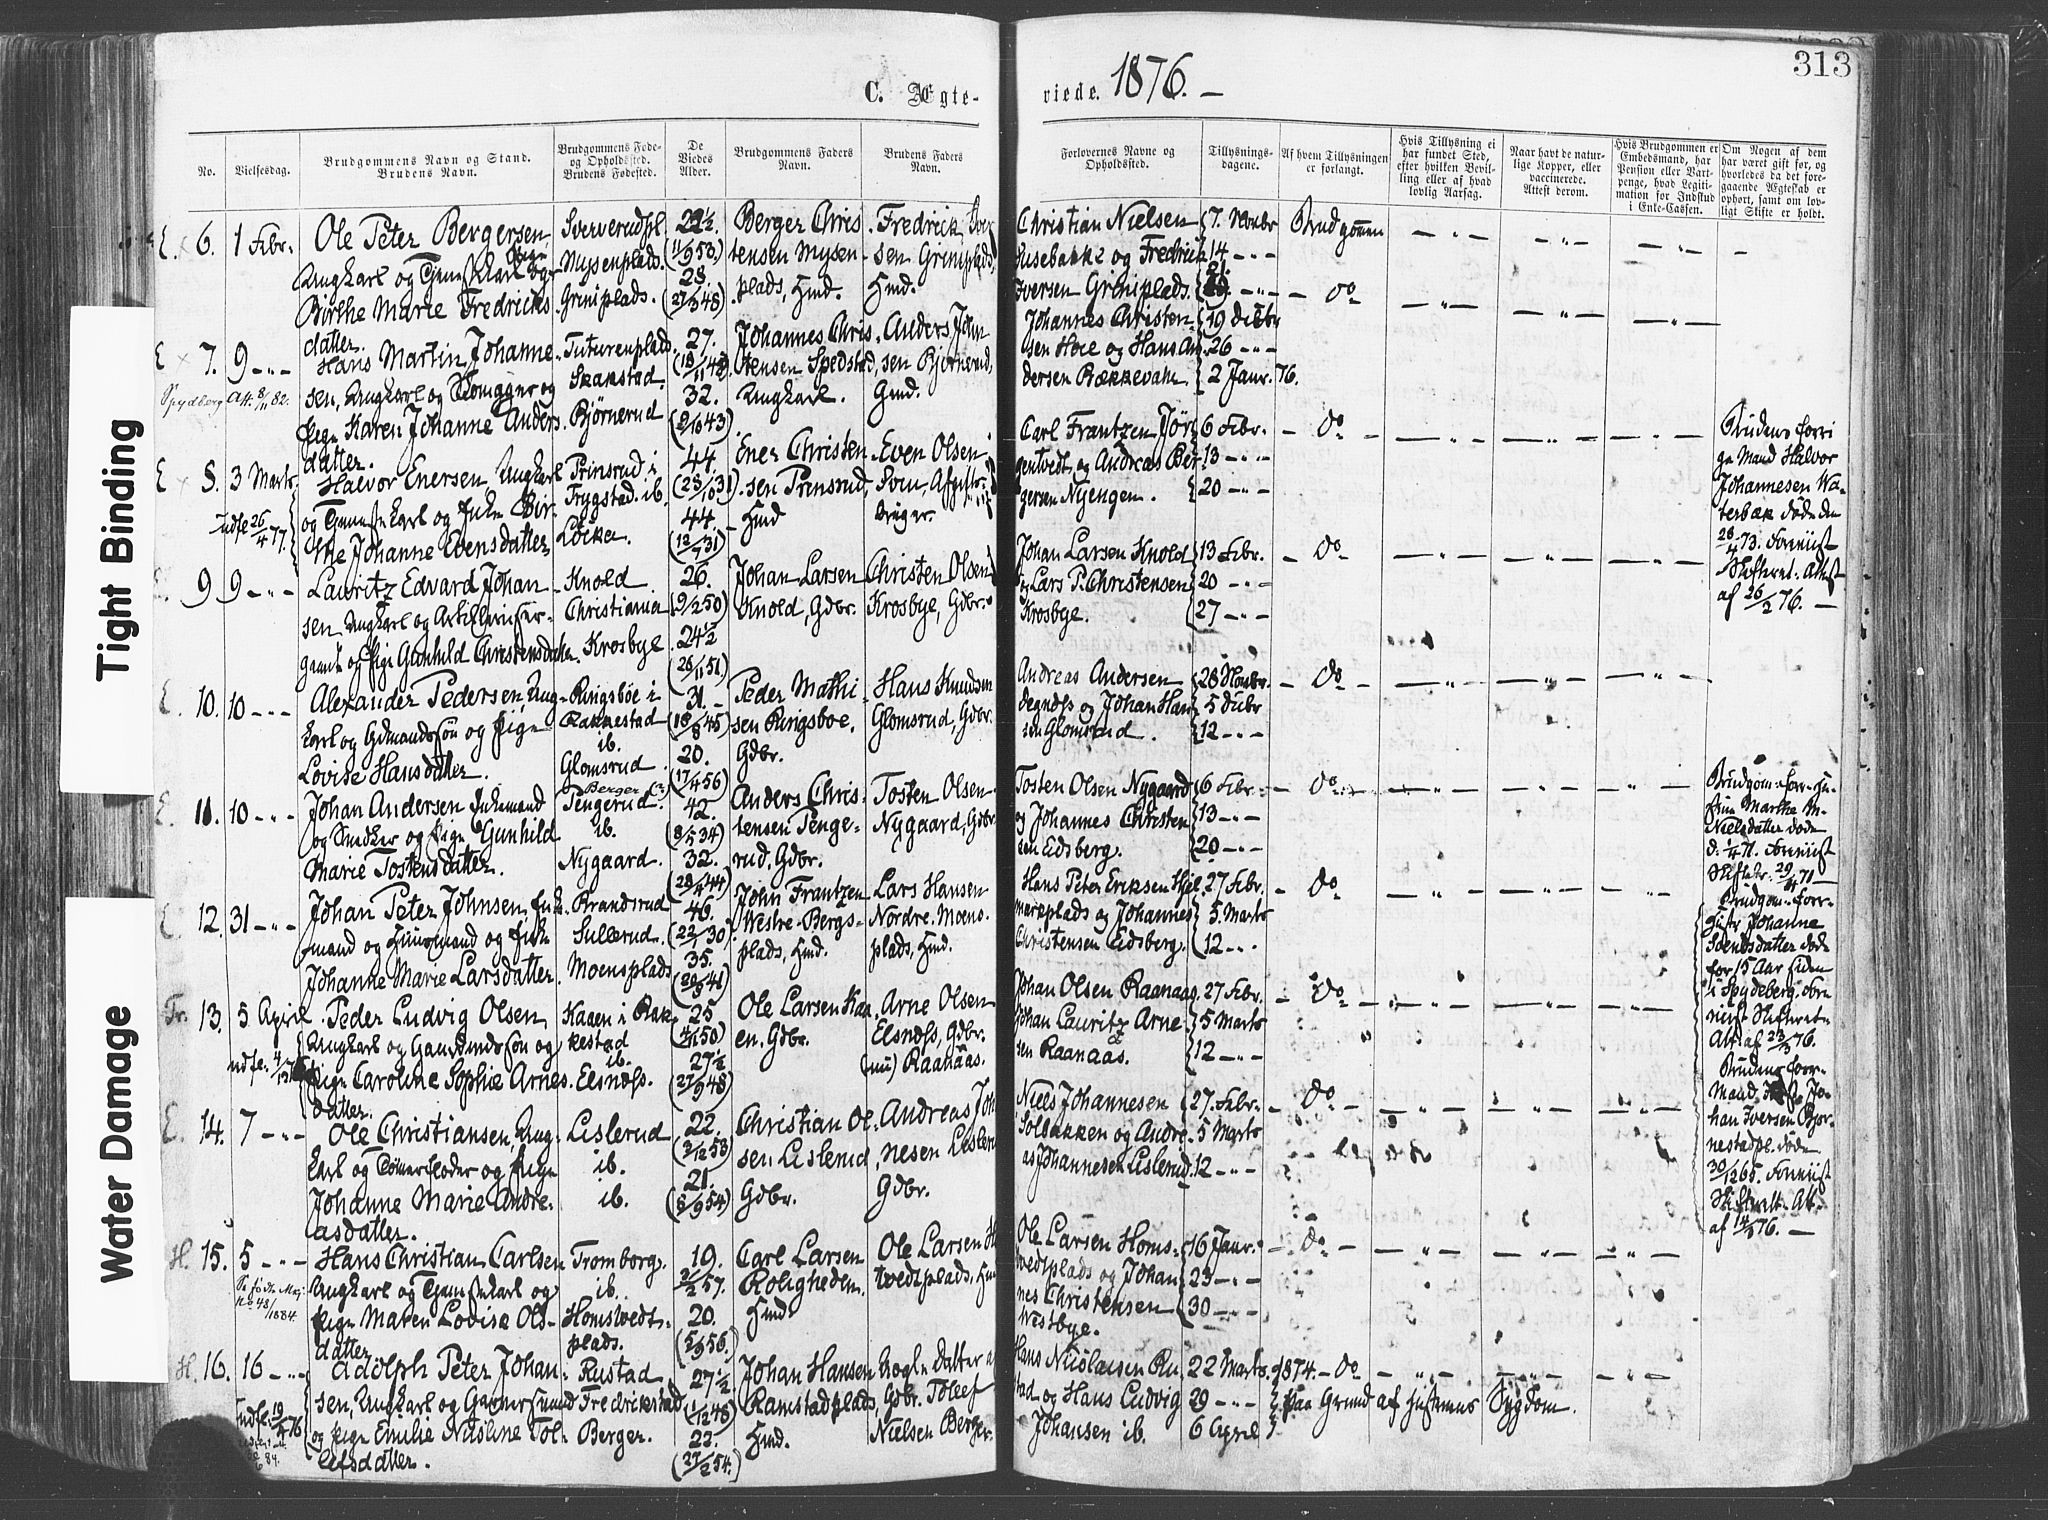 313
C. Ægte-
viede. 1876. —
Tight Binding
Water Damage
No.
Vielsesdag.
Brudgommens Navn og Stand.
Brudens Navn.
Brudgommens Føde-
og Opholdssted.
Brudens Fødested.
De
Viedes
Alder.
Brudgommens Faders
Navn.
Brudens Faders
Navn.
Forlovernes Navne og
Opholdssted.
Tillysnings-
dagene.
Af hvem Tillysningen
er forlangt.
Hvis Tillysning ei
har fundet Sted,
efter hvilken Bevil-
ling eller af hvad
lovlig Aarsag.
Naar havt de natur-
lige Kopper, eller
vaccinerede.
Attest derom.
Hvis Brudgommen er
Embedsmand, har
Pension eller Vart-
penge, hvad Legiti-
mation for Indskud
i Enke-Cassen.
Om Nogen af dem
har været gift før, og
hvorledes da det fore-
gaaende Ægteskab er
ophørt, samt om lov-
ligt Skifte er holdt.
E. × 6. 1 Febr.
Ole Peter Bergersen,
Ungkarl og
Birthe Marie Fredricks
datter.
Mysenplads.
Griniplads.
22½.
(11/9 53.)
28.
(27/3 48)
Berger Chris
tensen Mysen-
plads, Hmd.
Fredrick Iver
sen Griniplads,
Hmd.
Christian Nielsen
Husebakke og Fredrick
Iversen Griniplads.
7. Novbr
14 - " -
21.
Brudgommen
E × 7. 9 - " -
Spydberg Att. 8/11 82.
Hans Martin Johanne-
sen, Ungkarl og
Pige Karen Johanne Anders
datter.
Skakstad.
Bjørnerud
27.
32.
(8/10 43)
Johannes Chris
tensen Spedstad,
Ungkarl.
Anders John
sen Bjørnerud,
Gmd.
Johannes Christen-
sen Hoie og Hans An
dersen Bækkevahr.
19 Decbr
26 - " -
2 Janr. 76.
- Do -
E × 8. 3 Marts
Indfl. 26/4 77.
Halvor Enersen Ungkarl
og
the Johanne Evensdatter
Prinsrud i
Trygstad. ib.
Løcka.
44.
(28/10 31)
44.
(12/7 31)
Ener Christen-
sen Prensrud,
Hmd
Even Olsen
Carl Frantzen Jør
gentvedt og Andreas Ber
gersen Nyengen.
6 Febr.
13 - " -
20 - " -
- Do -
Brudens forri
ge Mand Halvor
Johannesen Wa-
terbæk døde den
28/4 73. Forevist
Skifteret. Attest
af 26/2 76. —
9 9 - " -
Lauritz Edvard Johan
sen, Ungkarl og Artilleriser-
geant og Pige Gunhild Christensdatter.
Knold
Christiania
Krosbye
26.
(9/2 50)
24½
(26/11 51)
Johan Larsen
Knold, Gdbr.
Christen Olsen
Krosbye, Gdbr.
Johan Larsen Knold
og Lars P. Christensen
Krosbye.
13 Febr.
20 - " -
27 - " -
- Do -
E. 10. 10 - " -
Alexander Pedersen, Ung-
karl og Gdmandssøn og Pige
Lovise Hansdatter.
Ringsbøe i
Rakkestad
ib.
Glomsrud
31.
(18/8 45)
20.
(17/4 56)
Peder Mathi
sen Ringsboe.
Gdbr.
Hans Knudsen
Glomsrud, Gdbr.
Andreas Andersen
Degnæss og Johan Han
sen Glomsrud.
28 Novbr.
5 Decbr
12 - " -
- Do -
E. 11. 10 - " -
Johan Andersen Enkemand
og Snedker og Pige Gunhild
Marie Tostensdatter.
Berger
Tengerud.
ib.
Nygaard.
42.
32.
(28/4 44)
Anders Chris-
tensen Tenge-
rud, Gdbr.
Tosten Olsen
Nygaard, Gdbr.
Tosten Olsen Nygaard
og Johannes Christen
sen Eidsberg.
6 Febr.
13 - " -
20 - " -
- Do -
Brudgom. forr. Hu-
stru Marthe M.
Nielsdatter døde
d. 1/4 71. Forevist
Skiftebr. 29/4 71 —
12. 31 - " -
Johan Peter Johnsen, Enk-
mand og Huusmand og Enke
Johanne Marie Larsdatter.
Brandsrud
Sullerud.
Moensplads
46.
(22/7 30)
35.
Johan Frantzen
Westre-Bergs-
plads, Hmd.
Lars Hansen
Nordre Moens-
plads, Hmd.
Hans Peter Eriksen Hjel
markplads og Johannes
Christensen Eidsberg.
27 Febr.
5. Marts
12 - " -
- Do -
Brudgom. forr.
Hustr. Johanne
Svendsdatter døde
for 15 Aar siden
i Spydeberg. Fore-
vist Skifteret-
Att af 23/3 76.
Brudens forr.
Mand, Jo-
han Iversen Bjør-
nestadpl. døde
30/12 65. Forevist
Skifteratt. Att.
af 14/3 76. —
Fr. 13. 5 April
Peder Ludvig Olsen
Ungkarl og Gaardmandssøn og
Pige Caroline Sophie Arnes-
datter.
Hagen i Rak
kestad
ib.
Elsnæss.
25
27½
(27/9 48)
Ole Larsen Haa
en. Gdbr.
Arne Olsen
Elsnæss, Gdbr.
(nu) Raanaas.
Johan Olsen Raanaas
Johan Lauritz Arne
sen Raanaas.
27 Febr.
5 Marts
12 - " -
- Do -
E. 14. 7 - " -
Ole Christiansen, Ung-
karl og Tømmerfløder og Pige
Johanne Marie Andre-
asdatter.
Lislerud
ib.
ib.
22.
(3/12 53)
21.
(8/9 54)
Christian Ol-
sen Lislerud,
Gdbr.
Andreas Joh
nesen Lisleru
Gdbr.
Niels Johannesen
Solbakken og Andre-
as Johannesen Lislerud.
27. Febr.
5 Marts
12 - " -
- Do -
H. 15. 5 - " -
No 48/1884.
Hans Christian Carlsen
Ungkarl og Tjenestekarl og
Pige Maren Lovise Ols-
datter
Tromborg.
ib.
Homstvedts-
plads.
19.
2/2 57.
20.
(5/9 56.)
Carl Larsen
Roligheden.
Hmd.
Ole Larsen H
tvedtplads, Hmd
Ole Larsen Homs-
tvedtplads og Johan
nes Christensen
Westbye.
16 Janr.
23 - " -
30 - " -
- Do -
H. 16. 16 - " -
Indfl. 19/4 76
Adolph Peter Johan-
sen, Ungkarl og
og Pige Emilie Nicoline Tol-
lefsdatter.
Rustad
Fredrikstad
Berger.
27½
(1/12 48)
22.
(27/2 54.)
Johan Hansen
Ramstadplads,
Hmd.
Gdbr. Tolef
Nielsen Berger.
Hans Nicolaisen Ru
stad og Hans Ludvig
Johansen ib.
22 Marts 1874.
29 - " -
6 April
- Do -
paa Grund af Sygdom.